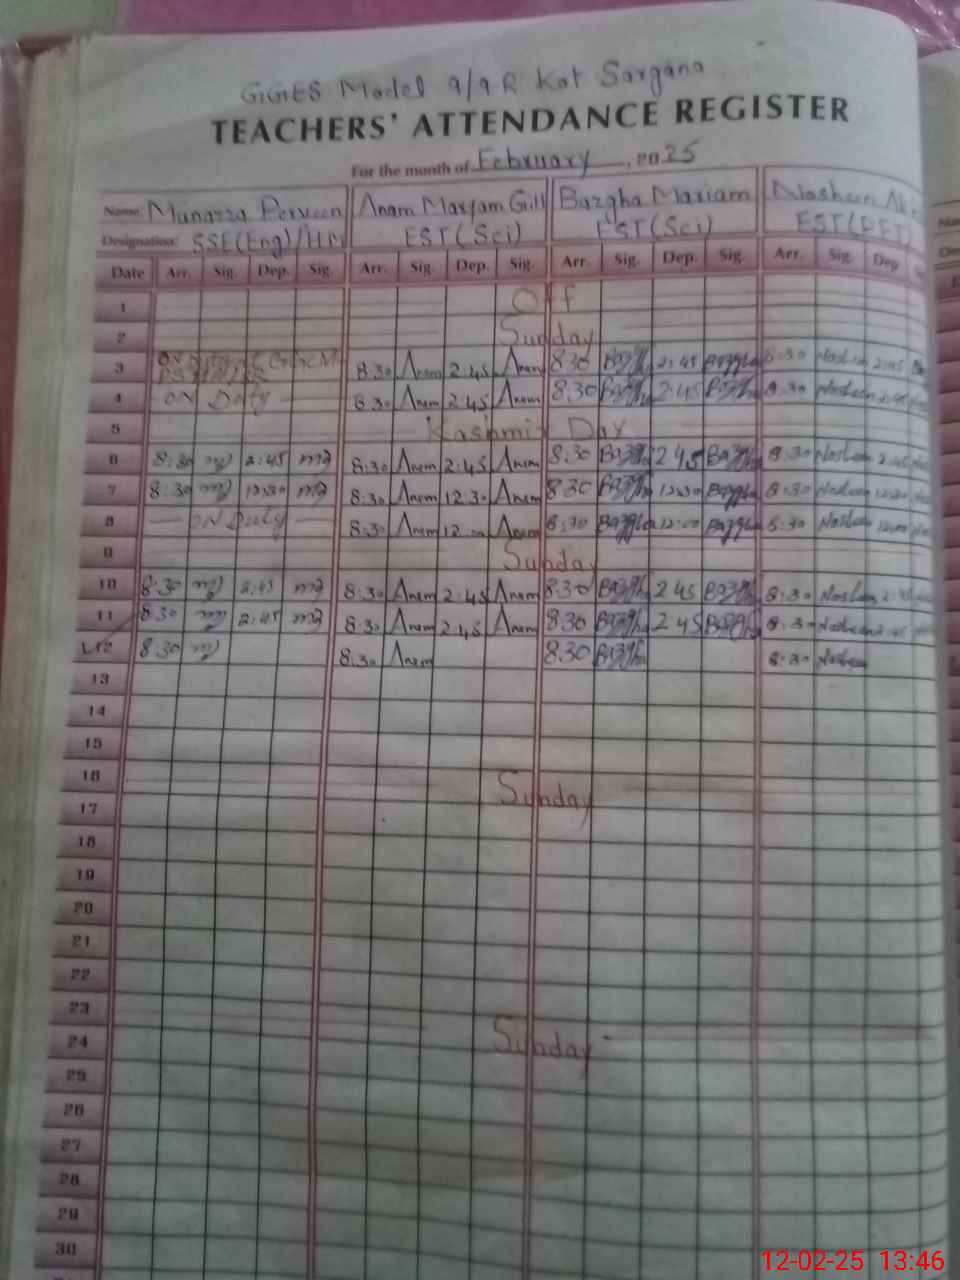 GGES Model 9/9R Kot Sargana
TEACHERS' ATTENDANCE REGISTER
For the month of February, 2025
Name: Munazza Perveen Anam Maryam Gill Bazgha Mariam Nosheen
Designation: SSE(Eng)/HM EST(Sci) EST(Sci) EST(PET)
Date Arr. Sig. Dep. Sig. Arr. Sig. Dep. Sig. Arr. Sig. Dep. Sig. Arr. Sig. Dep
1 Off
2 Sunday
3 8:30 Anam 2:45 Anam 8:30 Bazgha 2:45 Bazgha 8:30 Nosheen 2:45
4 ON Duty 8:30 Anam 2:45 Anam 8:30 Bazgha 2:45 Bazgha 8:30 Nosheen 2:45
5 Kashmir Day
6 8:30 2:45 8:30 Anam 2:45 Anam 8:30 Bazgha 2 45 Bazgha 8:30 Nosheen 2:45
7 8:30 12:30 8:30 Anam 12:30 Anam 8:30 Bazgha 12:30 Bazgha 8:30 Nosheen 12:30
8 ON Duty 8:30 Anam 12:00 Anam 8:30 Bazgha 12:00 Bazgha 8:30 Nosheen 12:00
9 Sunday
10 8:30 2:45 8:30 Anam 2:45 Anam 8:30 Bazgha 2 45 Bazgha 8:30 Nosheen 2:45
11 8:30 2:45 8:30 Anam 2:45 Anam 8:30 Bazgha 2 45 Bazgha 8:30 Nosheen 2:45
12 8:30 8:30 Anam 8:30 Bazgha 8:30 Nosheen
13
14
15
16 Sunday
17
18
19
20
21
22
23 Sunday
24
25
26
27
28
29
30
12-02-25 13:46